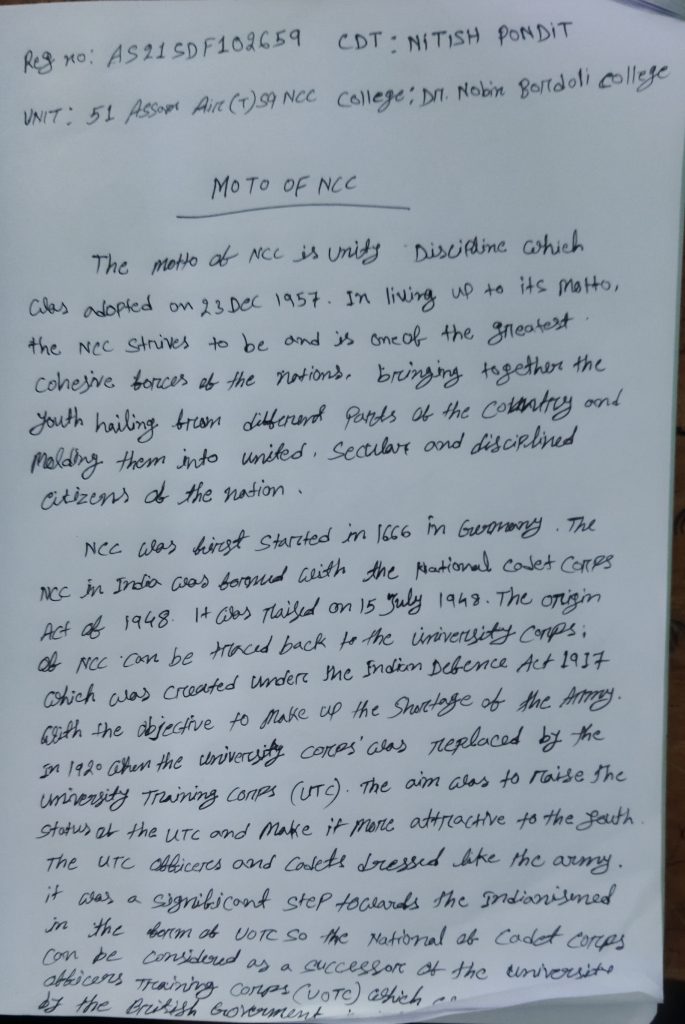 Reg no: AS21SDF102659 CDT: NITISH PONDIT
UNIT: 51 Assam Air (T) SQ NCC College: Dr. Nobin Bordoli College
MOTO OF NCC
The motto of NCC is unity Discipline which
was adopted on 23 Dec 1957. In living up to its motto,
the NCC strives to be and is one of the greatest
cohesive forces of the nations, bringing together the
youth hailing from different parts of the country and
molding them into united, Secular and disciplined
citizens of the nation.
NCC was first started in 1666 in Germany. The
NCC in India was formed with the National Cadet Corps
Act of 1948. It was raised on 15 July 1948. The origin
of NCC can be traced back to the university corps;
which was created under the Indian Defence Act 1917
with the objective to make up the shortage of the Army.
In 1920 when the university corps' was replaced by the
university Training corps (UTC). The aim was to raise the
status of the UTC and make it more attractive to the youth.
The UTC officers and cadets dressed like the army.
it was a significant step towards the Indianisened
in the form of UOTC so the National of Cadet corps
can be considered as a successor of the university
officers Training corps (UOTC) which
by the British Goverment